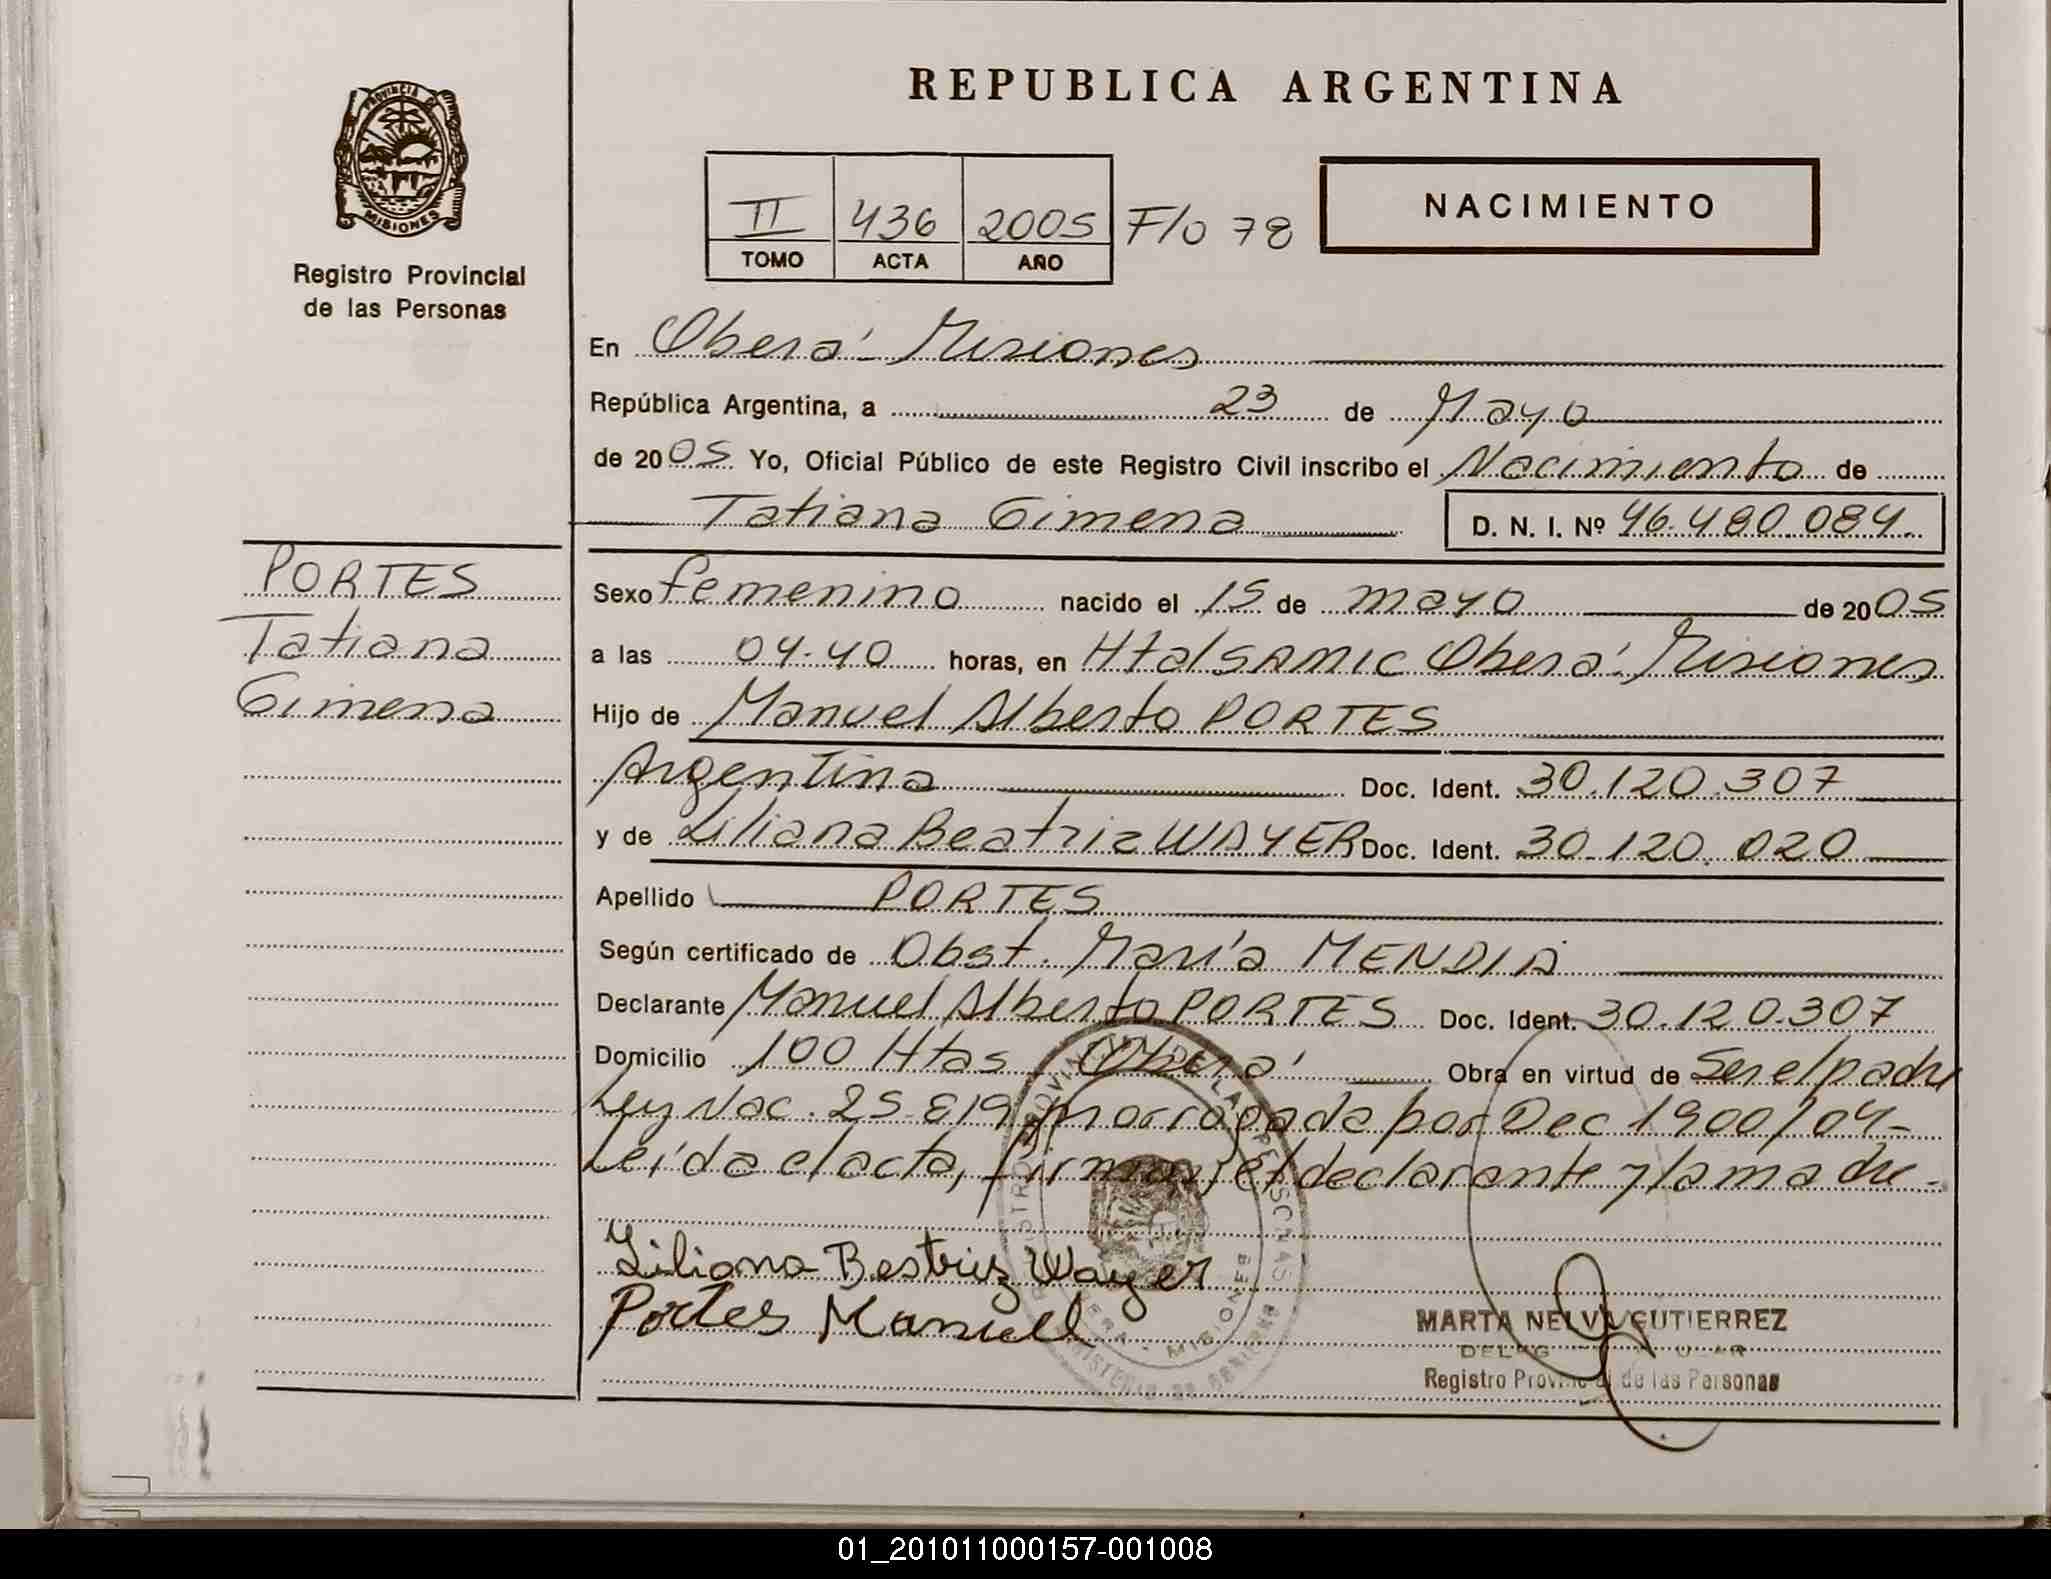 REPUBLICA ARGENTINA
PROVINCIA DE
MISIONES
Registro Provincial
de las Personas
II 436 2005 F/o 78
TOMO ACTA AÑO
NACIMIENTO
En Oberá - Misiones
República Argentina, a 23 de Mayo
de 2005 Yo, Oficial Público de este Registro Civil inscribo el Nacimiento de
Tatiana Gimena D. N. I. Nº 46.480.084.
PORTES
Tatiana
Gimena
Sexo femenino nacido el 15 de mayo de 2005
a las 04.40 horas, en Htal SAMIC Oberá - Misiones
Hijo de Manuel Alberto PORTES
Argentina Doc. Ident. 30.120.307
y de Liliana Beatriz WAYER Doc. Ident. 30.120.020
Apellido PORTES
Según certificado de Obst. María MENDIA
Declarante Manuel Alberto PORTES Doc. Ident. 30.120.307
Domicilio 100 Htas Oberá Obra en virtud de Ser el padre
Ley Nac. 25.819 prorrogada por Dec 1900/04-
Leída el acta, firman el declarante y la madre -
Liliana Beatriz Wayer
Portes Manuel
MARTA NELVI GUTIERREZ
Registro Provincial de las Personas
01_201011000157-001008